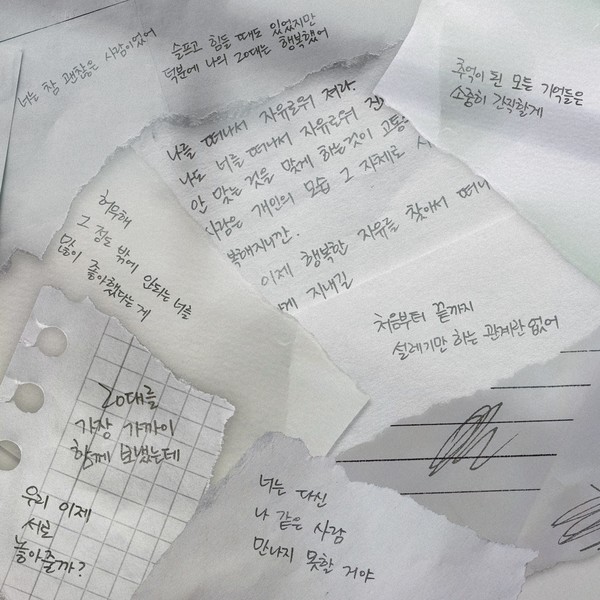 너는 참 괜찮은 사람이었어
슬프고 힘들 때도 있었지만
덕분에 나의 20대는 행복했어
추억이 된 모든 기억들은
소중히 간직할게
나를 떠나서 자유로워 져라.
나도 너를 떠나서 자유로워 진
안 맞는 것을 맞게 하는것이 고통
사랑은 개인의 모습 그 자체로 사
복해지니깐.
이제 행복한 자유를 찾아서 떠나
하게 지내길
허무해
그 정도 밖에 안되는 너를
많이 좋아했다는 게
처음부터 끝까지
설레기만 하는 관계란 없어
20대를
가장 가까이
함께 보냈는데
우리 이제
서로
놓아줄까?
너는 다신
나 같은 사람
만나지 못할 거야